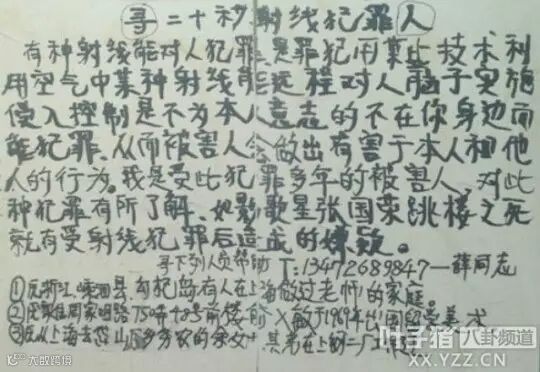 寻二十秒射线犯罪人
有种射线能对人犯罪,是罪犯用某些技术利
用空气中某种射线能远程对人脑子实施
侵入控制是不为本人意志的不在你身边而
能犯罪、从而被害人会做出有害于本人和他
人的行为。我是受此犯罪多年的被害人、对此
种犯罪有所了解、如影歌星张国荣跳楼之死
就有受射线犯罪后造成的嫌疑。
寻下列人员帮助 T:13472689847—薛同志
①原浙江、嵊泗县、勾杞岛有人在上海做过老师的家庭。
②原家住周家嘴路75弄 号前楼 于1969年出国 美
③原从上海去岱山 多
叶猪八卦频道
XX.YZZ.CN
大叔跨境